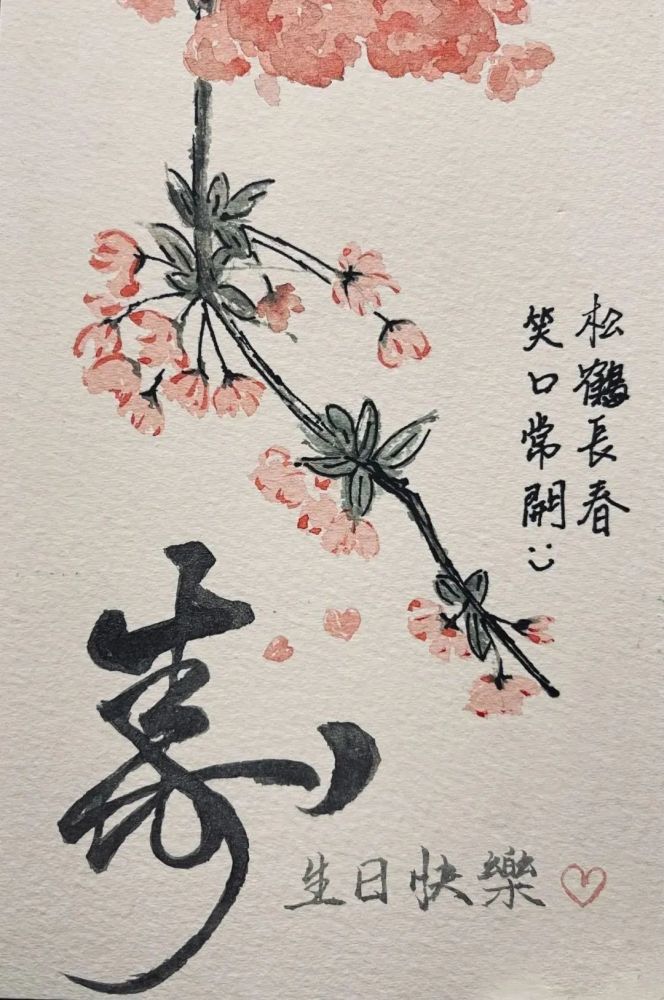 松鶴長春
笑口常開:)
壽
生日快樂♡